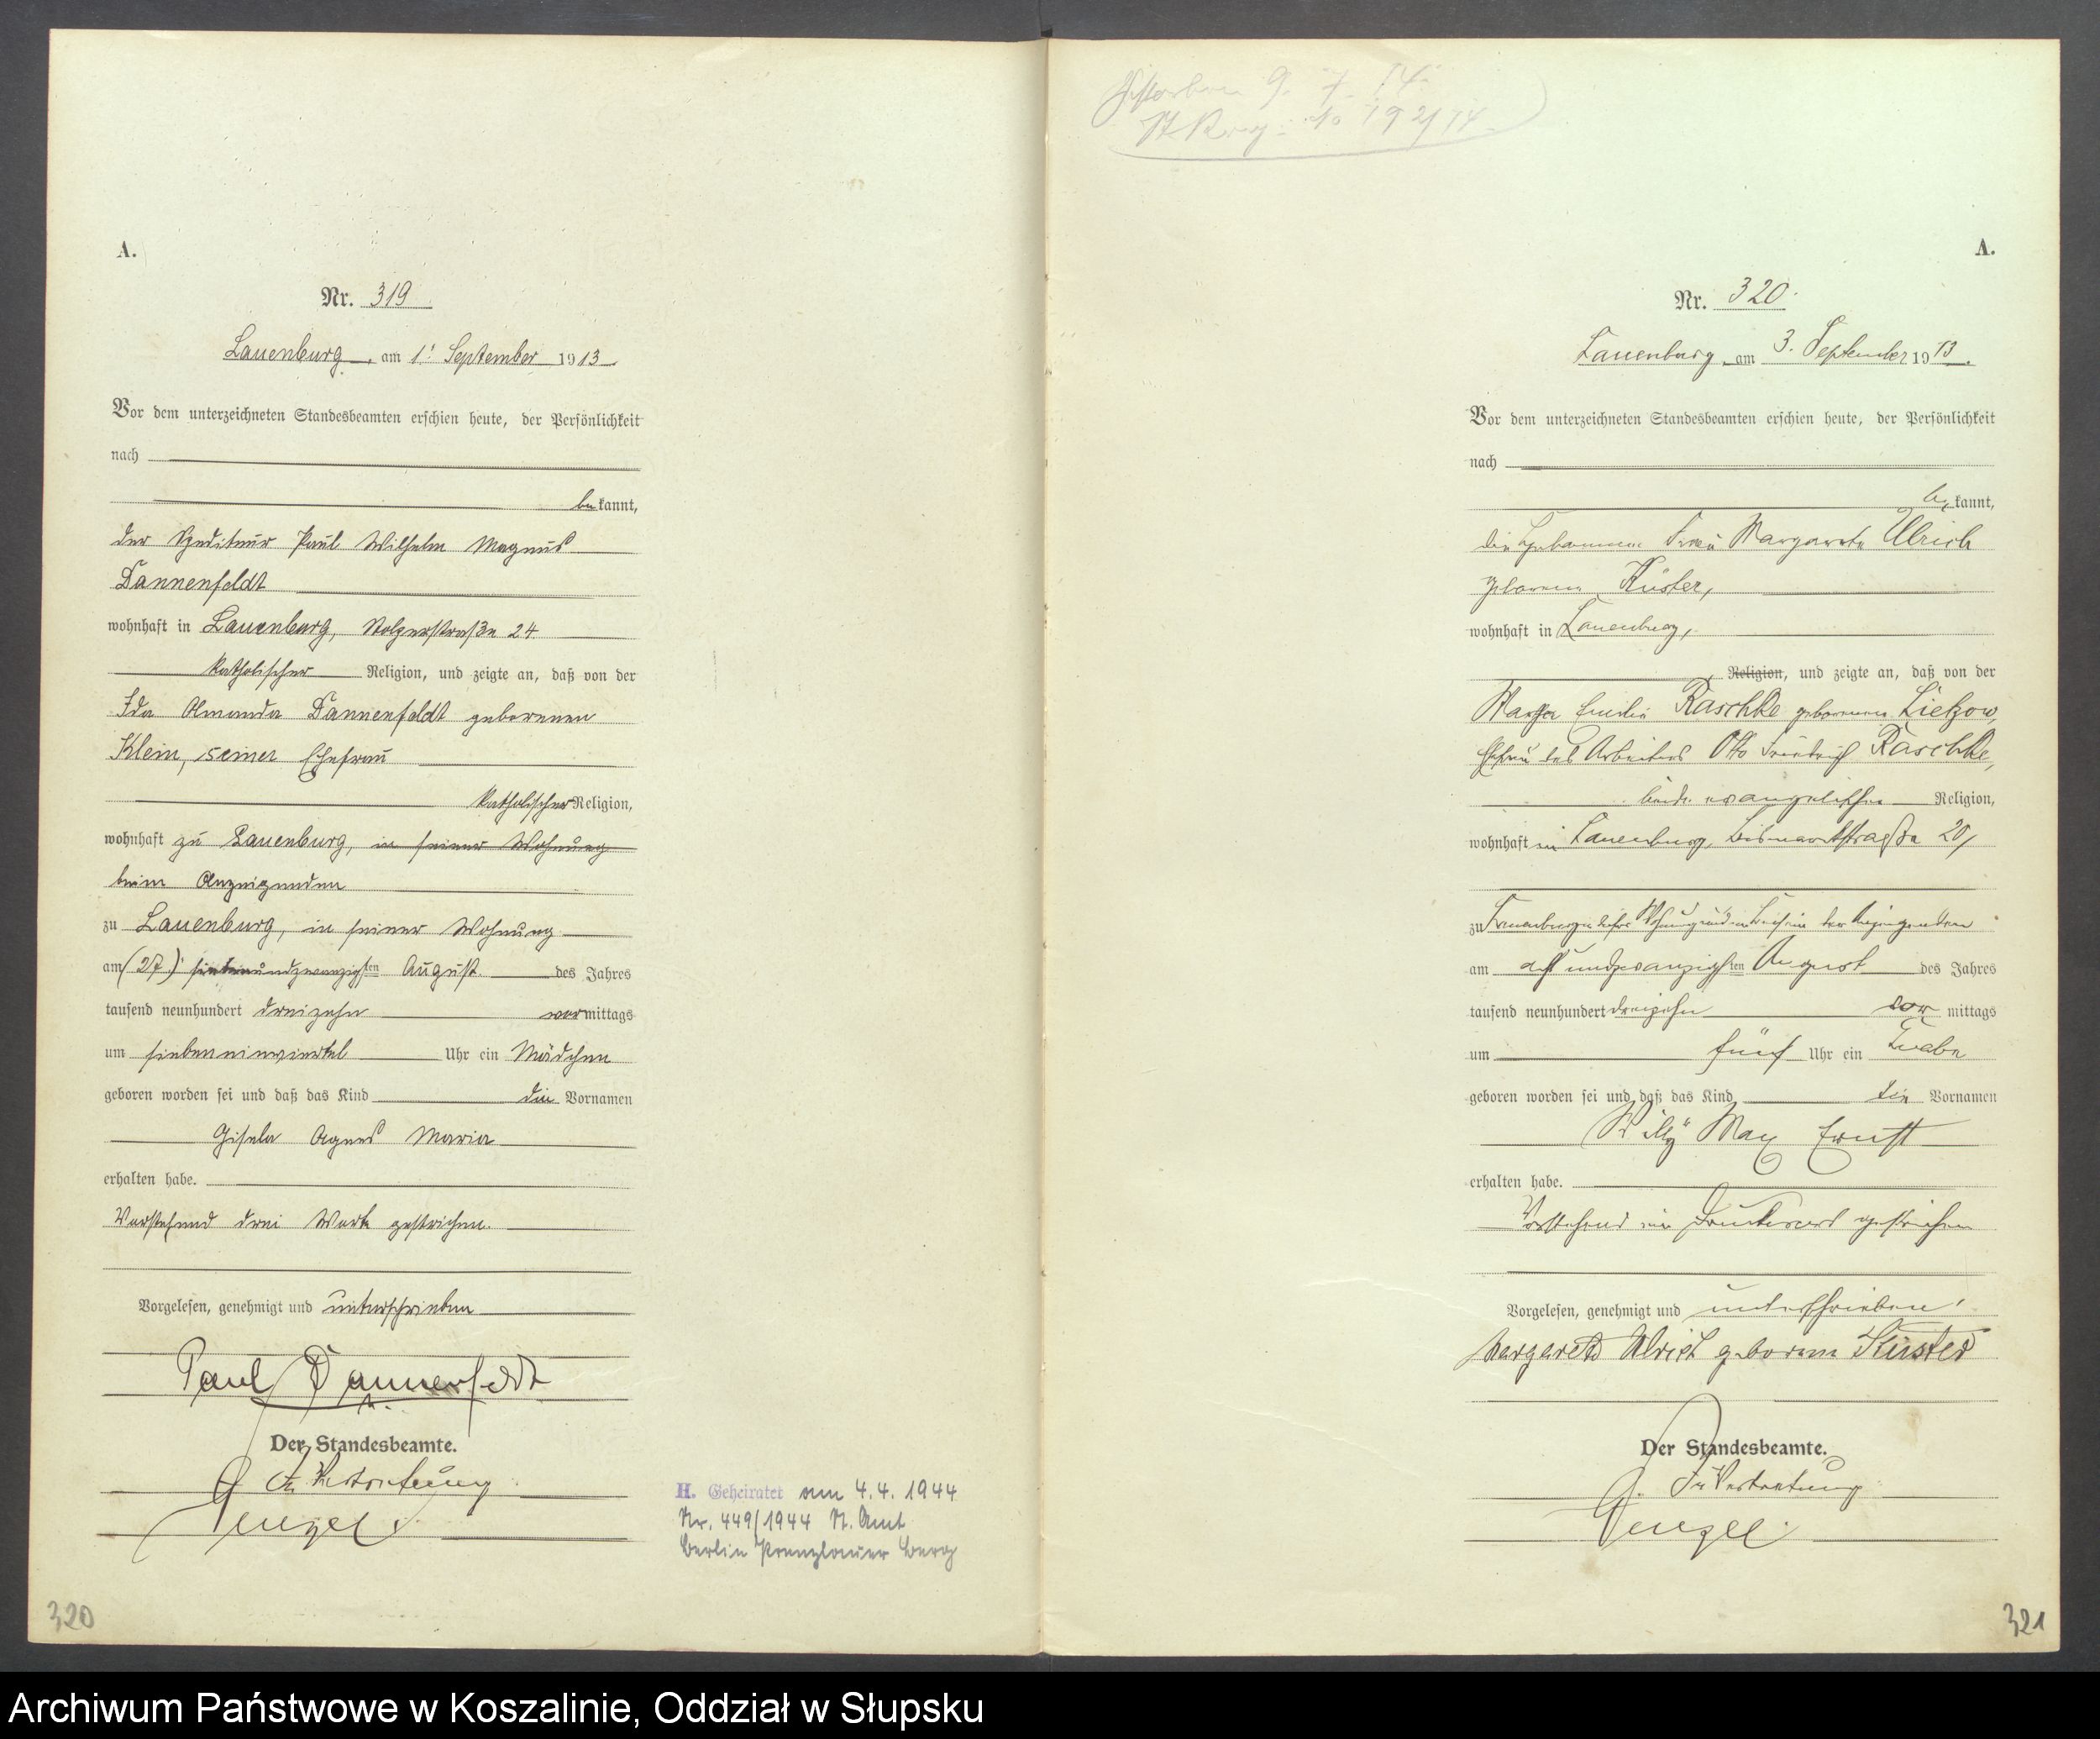 A.
Nr. 319
Lauenburg, am 1. September 1913.
Vor dem unterzeichneten Standesbeamten erschien heute, der Persönlichkeit
nach
bekannt,
der Spediteur Paul Wilhelm Magnus
Dannenfeldt
wohnhaft in Lauenburg, Stolperstraße 24
katholischer Religion, und zeigte an, daß von der
Ida Amanda Dannenfeldt geborenen
Klein, seiner Ehefrau
katholischer Religion,
wohnhaft zu Lauenburg, in seiner Wohnung
beim Anzeigenden
zu Lauenburg, in seiner Wohnung
am (27) siebenundzwanzigsten August des Jahres
tausend neunhundert dreizehn vormittags
um siebeneinviertel Uhr ein Mädchen
geboren worden sei und daß das Kind die Vornamen
Gisela Agnes Maria
erhalten habe.
Vorstehend drei Worte gestrichen.
Vorgelesen, genehmigt und unterschrieben
Paul Dannenfeldt
Der Standesbeamte.
In Vertretung
H. Geheiratet am 4.4.1944
Nr. 449/1944 St. Amt
Berlin Prenzlauer Berg
320
Gestorben 9. 7. 14.
192/14
A.
Nr. 320.
Lauenburg, am 3. September 1913.
Vor dem unterzeichneten Standesbeamten erschien heute, der Persönlichkeit
nach
bekannt,
die Hebamme Frau Margarete Ulrich
geborene Küster,
wohnhaft in Lauenburg,
Religion, und zeigte an, daß von der
Martha Emilie Raschke geborenen Lietzow,
Ehefrau des Arbeiters Otto Friedrich Raschke,
beide evangelischer Religion,
wohnhaft in Lauenburg, Bismarckstraße 20,
zu Lauenburg in dieser Wohnung und in Beisein der Anzeigenden
am achtundzwanzigsten August des Jahres
tausend neunhundert dreizehn vormittags
um fünf Uhr ein Knabe
geboren worden sei und daß das Kind die Vornamen
Willy Max Ernst
erhalten habe.
Vorstehend ein Druckwort gestrichen
Vorgelesen, genehmigt und unterschrieben.
Margarete Ulrich geborene Küster
Der Standesbeamte.
In Vertretung
321
Archiwum Państwowe w Koszalinie, Oddział w Słupsku